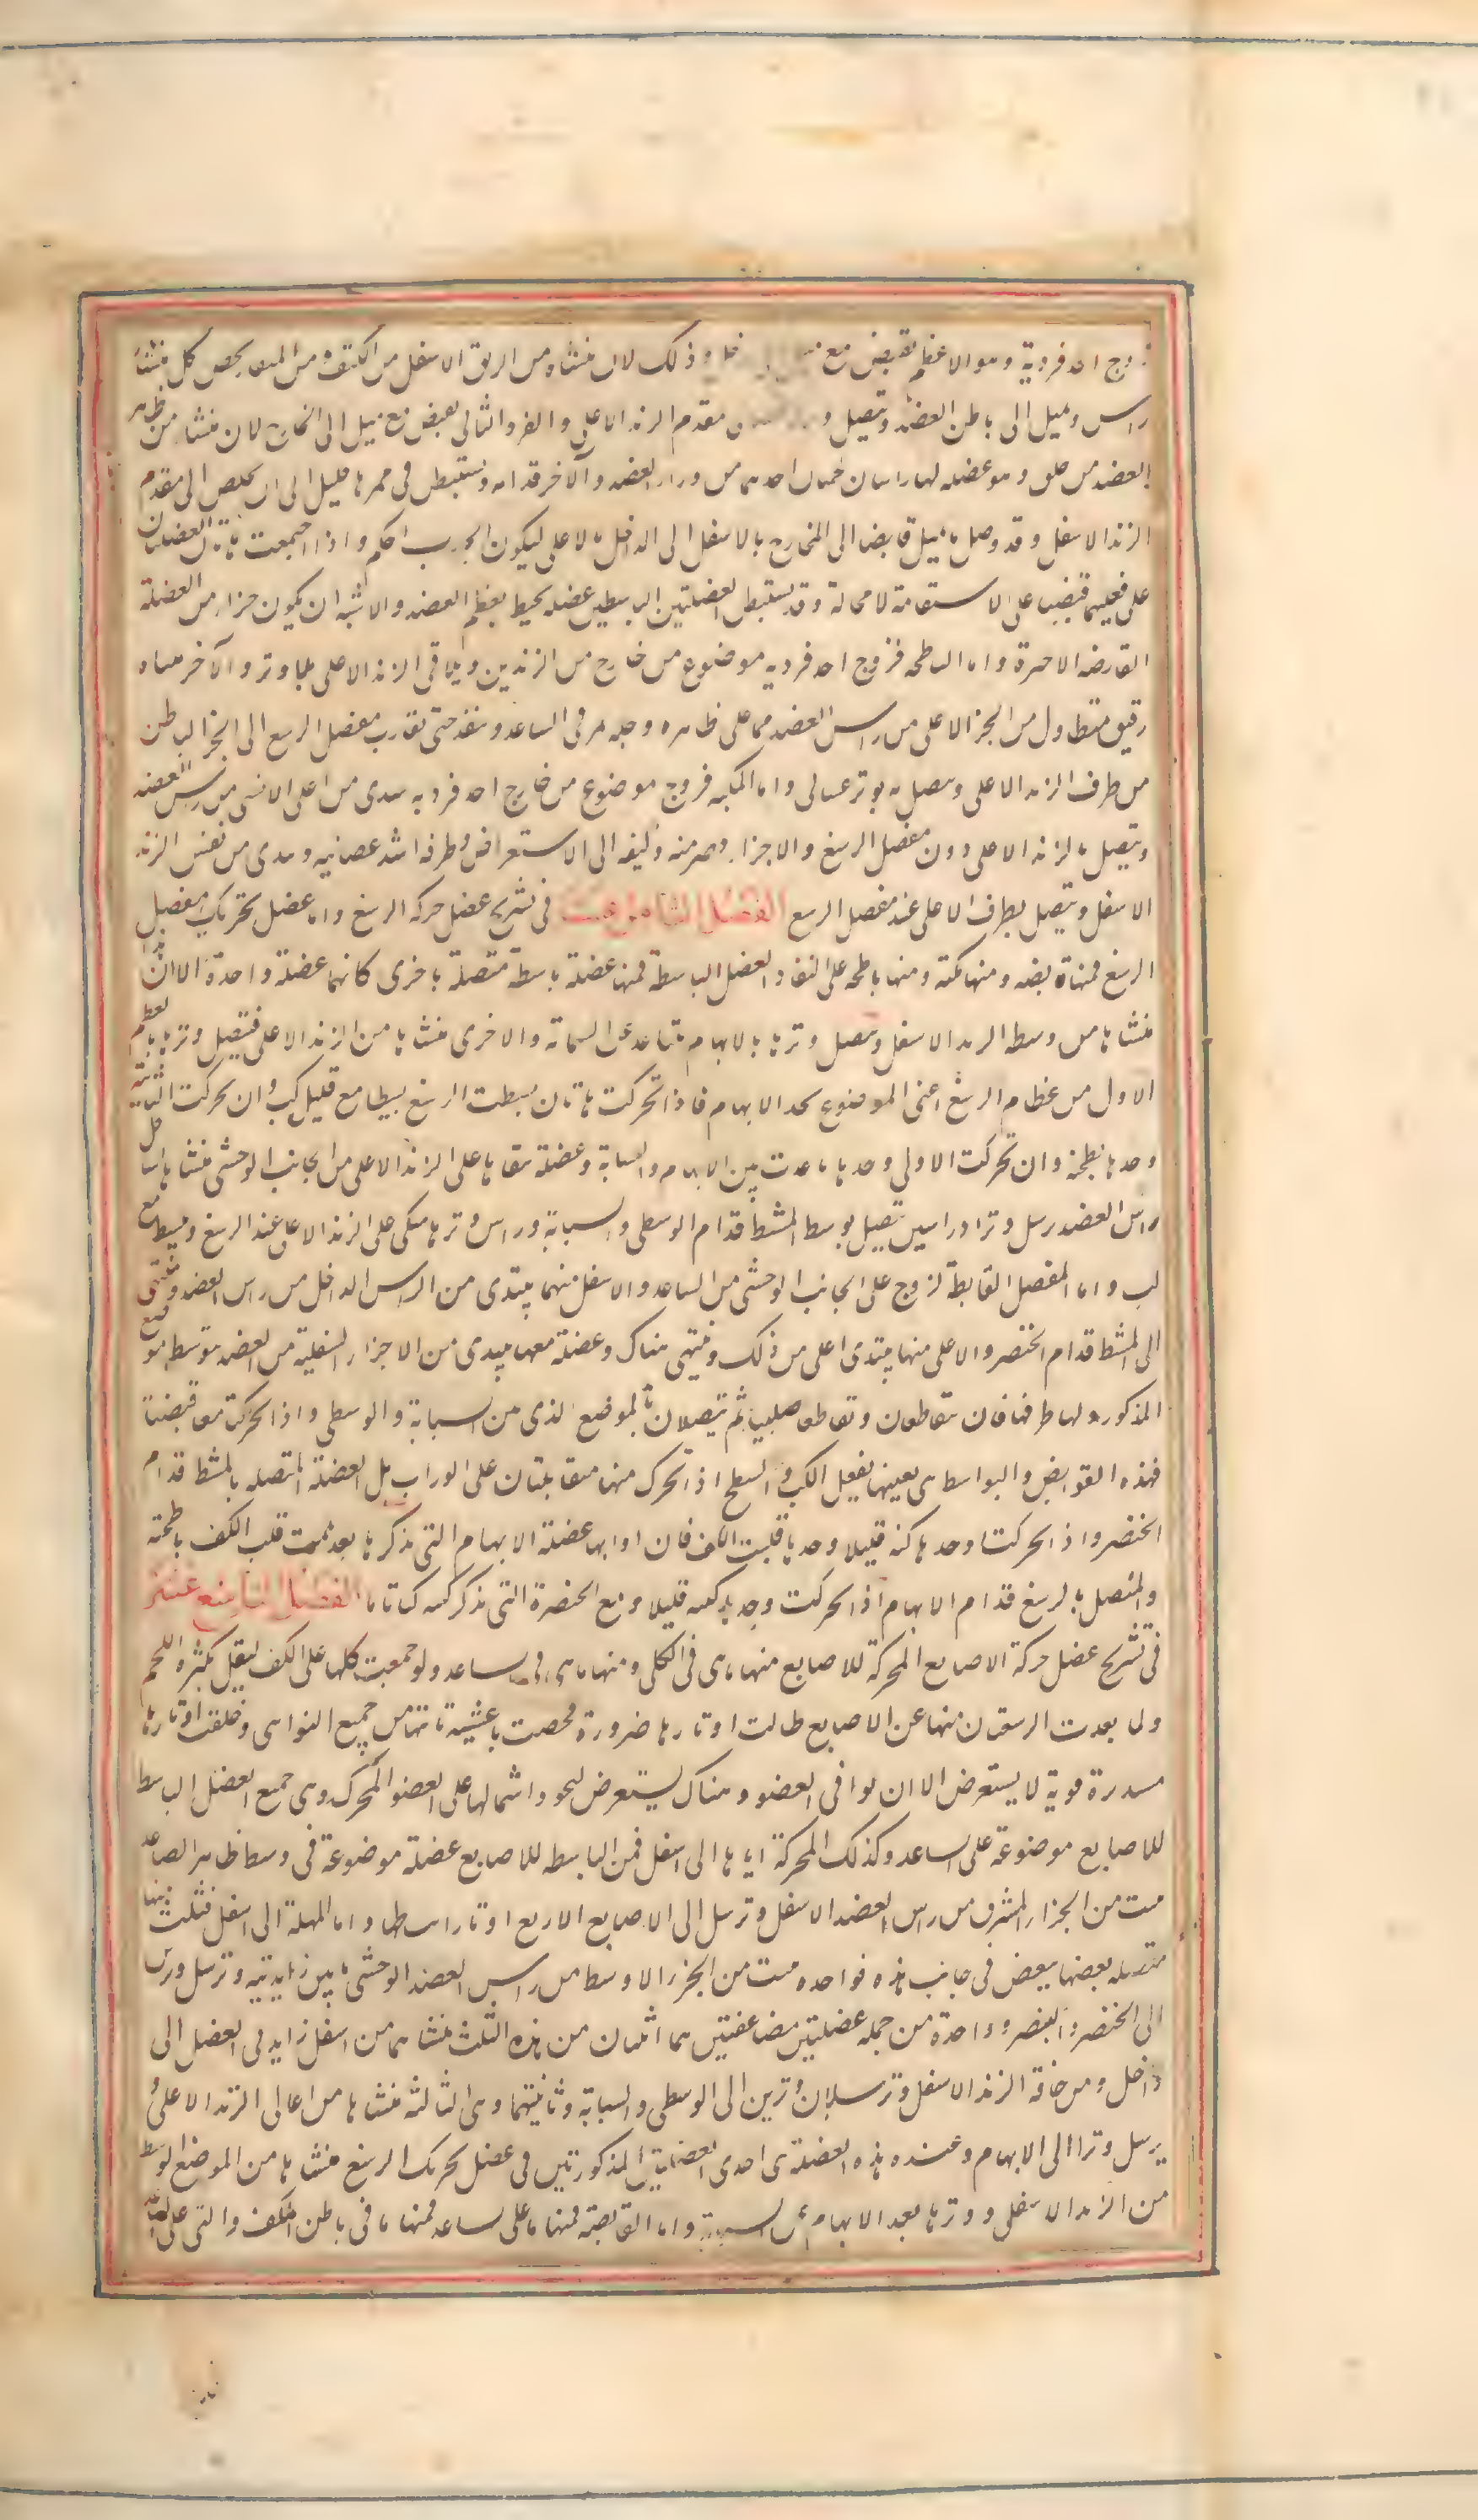 زوج احد فرديه وهو الاعظم يقبض مع وذلك لان منشاه من الزيق الاسفل من الكتف ومن المنقار يخص كل منشا
راس ويميل الى باطن العضد ويتصل و مقدم الزند الاعلى والفرد الثانى يقبض مع ميل الى الخارج لان منشاه من ظاهر
العضد من خلف وهو عضله لها راسان لحميان احدهما من وراء العضد والآخر قدامه وتستبطن فى ممرها قليلا الى ان يخلص الى مقدم
الزند الاسفل وقد وصل ما يميل قابضا الى الخارج بالاسفل والى الداخل بالاعلى ليكون الجذب احكم واذا اجتمعت هاتان العضلتان
على فعليهما قبضتا على الاستقامة لا محالة وقد يستبطن العضلتين الباسطين عضله يحيط بعظم العضد والاشبه ان يكون جزاء من العضلة
القابضه الاخيرة واما الباطحه فزوج احد فرديه موضوع من خارج من الزندين ويلاقى الزند الاعلى بلا وتر والآخر منهاه
رقيق متطاول من الجز الاعلى من راس العضد مما على ظاهره وجله مر فى الساعد وينفذ حتى يقارب مفصل الرسغ الى الجز الباطن
من طرف الزند الاعلى ويتصل به بوتر غشائى واما المكبه فزوج موضوع من خارج احد فرديه يبتدى من اعلى الانسى من راس العضد
ويتصل بالزند الاعلى دون مفصل الرسغ والاجزاء ومنه وليفه الى الاستعراض وطرفه اشد عصبانيه ويبتدى من نفس الزند
الاسفل ويتصل بطرف الاعلى عند مفصل الرسغ الفصل الثامن عشر فى تشريح عضل حركة الرسغ واما عضل تحريك مفصل
الرسغ فمنها قابضه ومنها مكبه ومنها باطحه على القفا والعضل الباسطة فمنها عضلة باسطة متصلة باخرى كانهما عضلة واحدة الا ان هذا
منشاها من وسط الزند الاسفل ويتصل وترها بالابهام يتباعد عن السبابة والاخرى منشاها من الزند الاعلى فيتصل وترها بالعظم
الاول من عظام الرسغ اعنى الموضوع بحد الابهام فاذا تحركت هاتان بسطت الرسغ بسيطا مع قليل كب وان تحركت الثانية
وحدها بطحته وان تحركت الاولى وحدها باعدت بين الابهام والسبابة وعضلة ملقاها على الزند الاعلى من الجانب الوحشى منشاها اسافل
راس العضد يرسل وترا ذا راسين يتصل بوسط المشط قدام الوسطى والسبابة وراس وترها متكى على الزند الاعلى عند الرسغ ويبسط مع
كب واما المفصل القابطة لزوج على الجانب الوحشى من الساعد والاسفل منهما يبتدى من الراس الداخل من راس العضد وينتهى
الى المشط قدام الخنصر والاعلى منها يبتدى اعلى من ذلك وينتهى هناك وعضلة معها يبتدى من الاجزاء السفلية من العضد متوسط موضع
المذكوره لها طرفان يتقاطعان وتقاطعا صليبيا ثم يتصلان بالموضع الذى من السبابة والوسطى واذا تحركتا معا قبضتا
فهذه القوابض والبواسط هى بعينها يفعل الكب والبطح اذا تحرك منها متقابلتان على الوراب بل العضلة المتصله بالمشط قدام
الخنصر واذا تحركتا وحدها كبته قليلا وحدها قلبت الكف فان اعانها عضلة الابهام التى نذكرها بعد تممت قلب الكف باطحته
والمتصل بالرسغ قدام الابهام اذا تحركت وحدها كبته قليلا ومع الخنصرة التى نذكر كبته كبا تاما الفصل التاسع عشر
فى تشريح عضل حركة الاصابع المحركة للاصابع منها ما هى فى الكف ومنها ما هى فى ساعد ولو جمعت كلها على الكف لثقل بكثرة اللحم
ولما بعدت الرسغن منها عن الاصابع طالت اوتارها ضرورة فحصنت باغشية تاتيها من جميع النواحى وخلقت اوتارها
مستديرة قوية لا يستعرض الا ان يوافى العضو وهناك يستعرض ليجود اشتمالها على العضو المتحرك وهى جميع العضل الباسط
للاصابع موضوعة على الساعد وكذلك المحركة اياها الى اسفل فمن الباسطه للاصابع عضلة موضوعة فى وسط ظاهر الصاعد
نبت من الجزاء المشرف من راس العضد الاسفل وترسل الى الاصابع الاربع اوتارا يبسطها واما المميلة الى اسفل فثلث منها
متصله بعضها ببعض فى جانب هذه فواحده نبت من الجزء الاوسط من راس العضد الوحشى ما بين زايدتيه وترسل وترين
الى الخنصر والبنصر وواحدة من جمله عضلتين مضاعفتين هما اثنتان من هذه الثلث منشاهما من اسفل زايدتى العضل الى
داخل ومن حافة الزند الاسفل وترسلان وترين الى الوسطى والسبابة وثانيتهما وهى الثالثه منشاها من اعالى الزند الاعلى و
يرسل وترا الى الابهام وعنده هذه العضلة هى احدى العضلتين المذكورتين فى عضل تحريك الرسغ منشاها من الموضع الوسط
من الزند الاسفل ووترها يبعد الابهام عن السبابة واما القابضة فمنها ما على ساعد فمنها ما فى باطن الكف والتى على الساعد